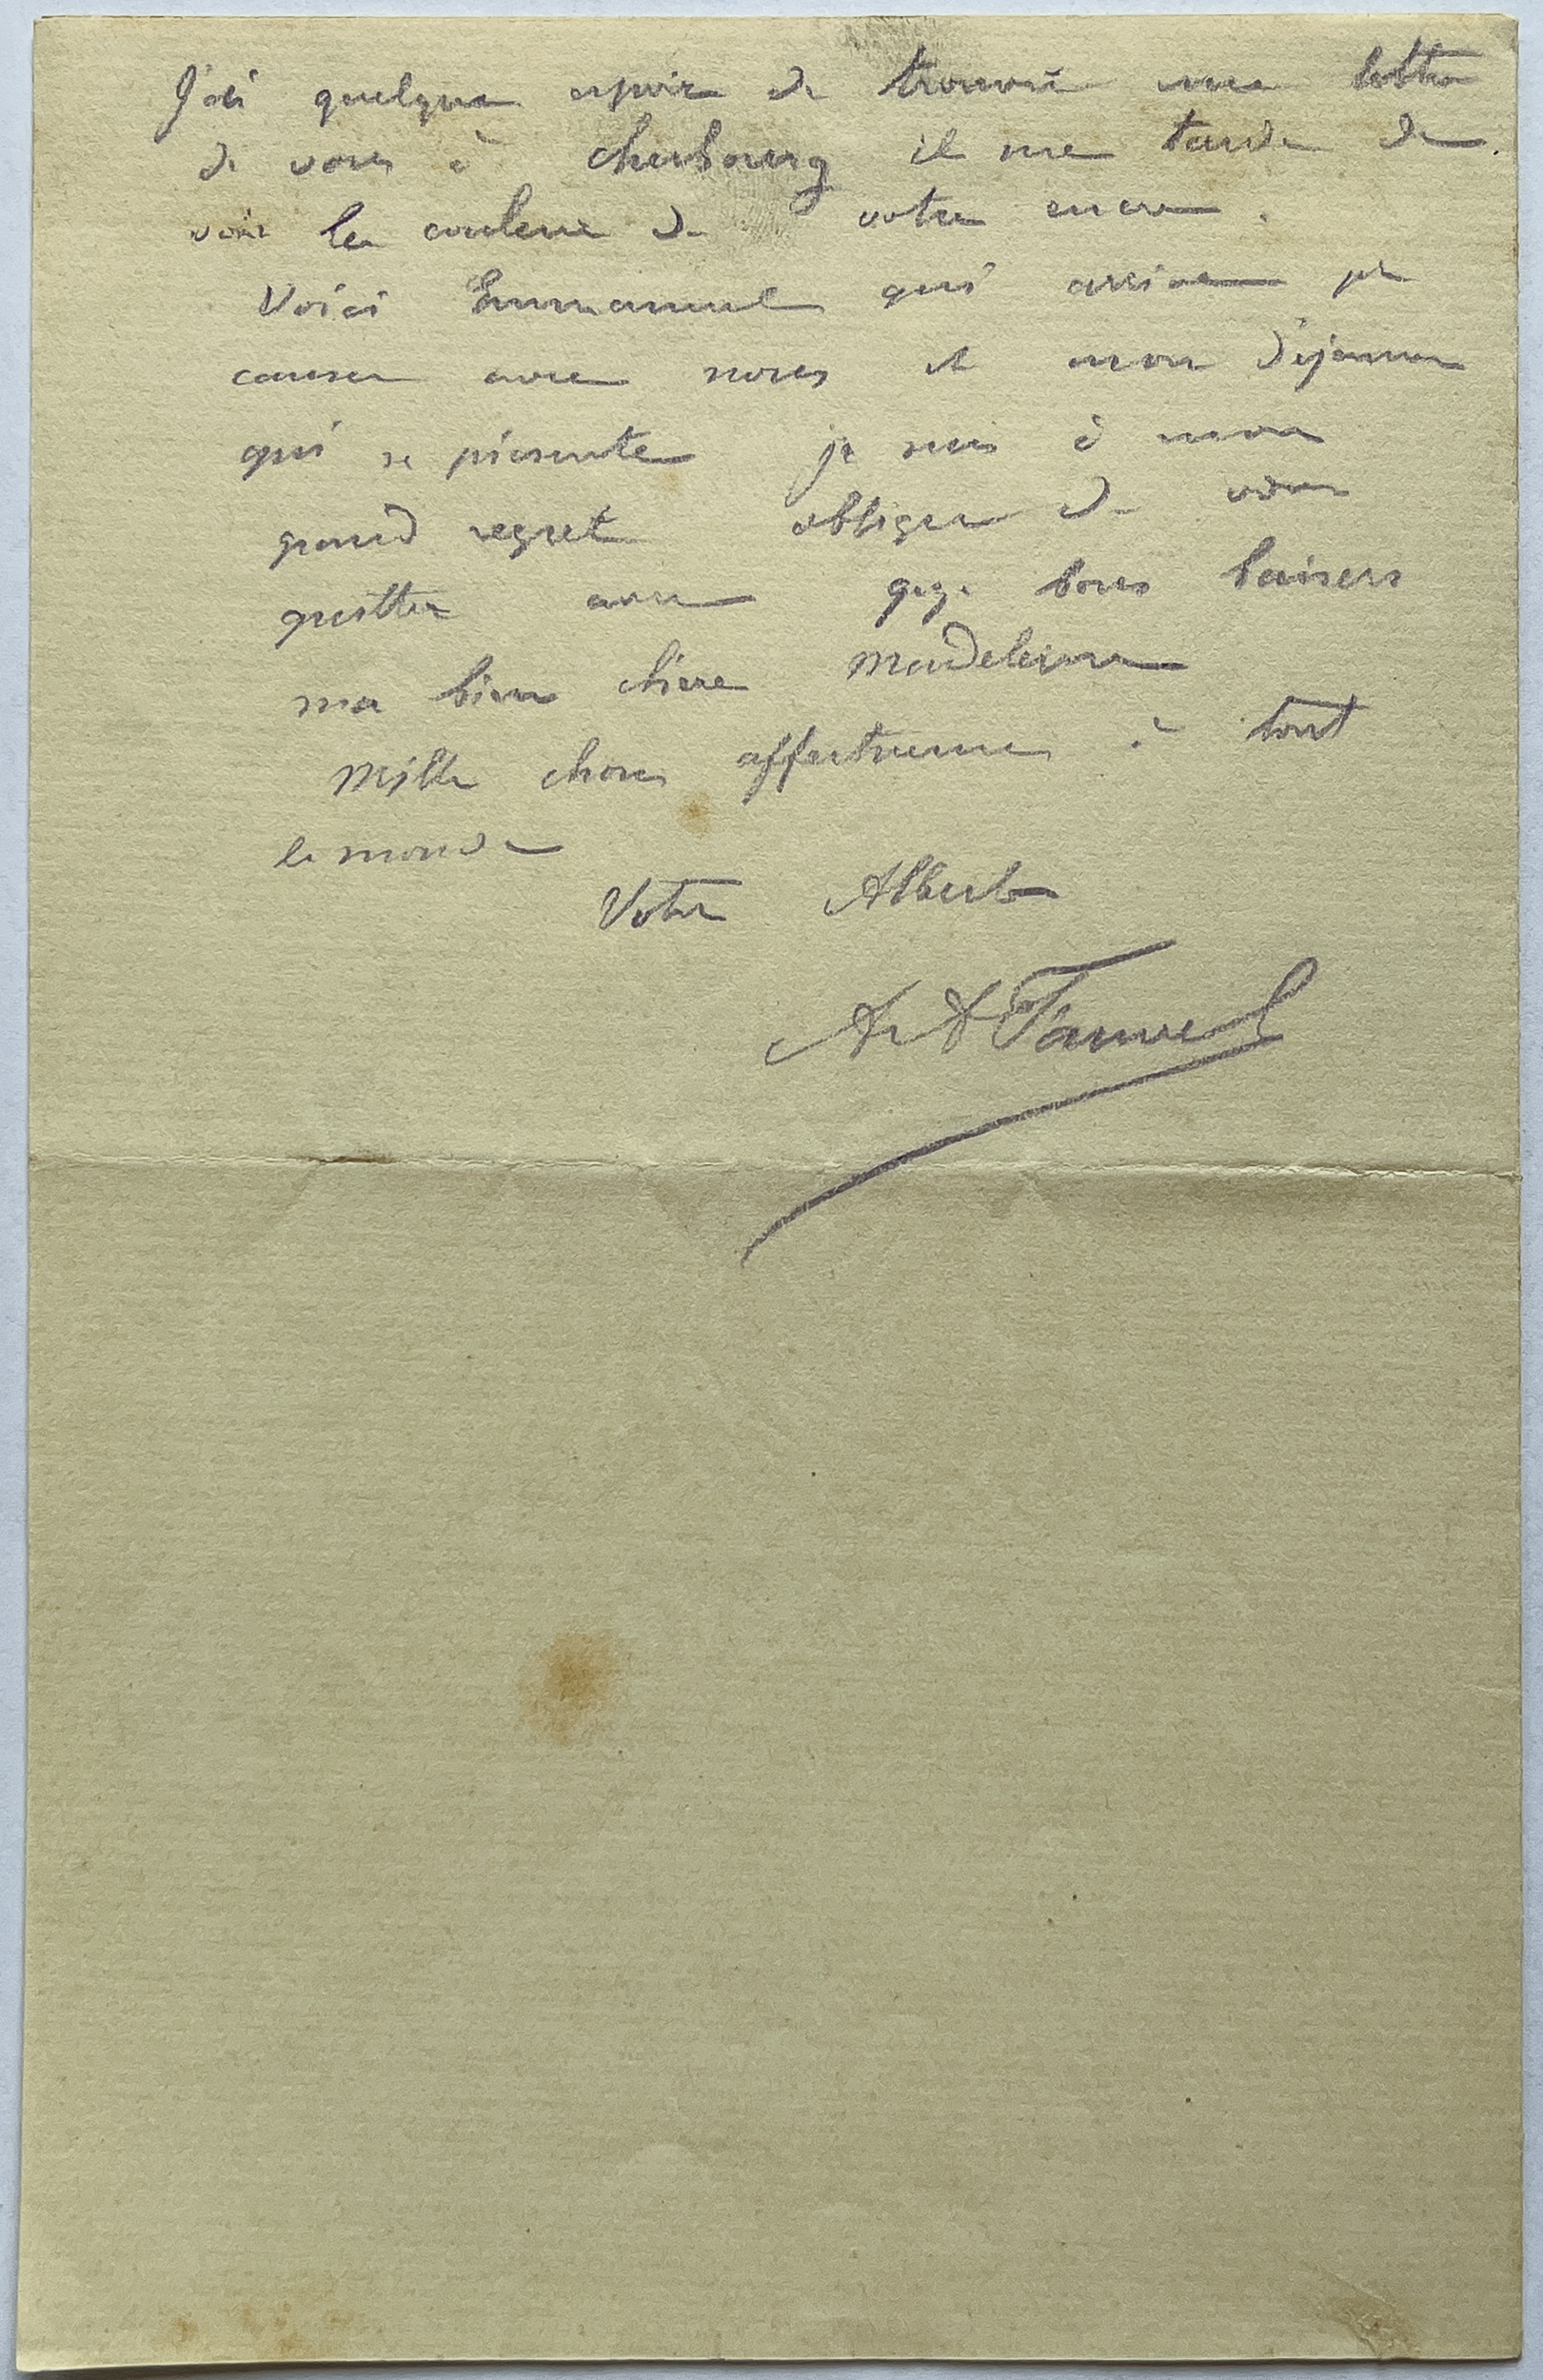 J'ai quelque espoir de trouver une lettre
de vous à cherbourg il me tarde de
voir la couleur de votre encre.
Voici Emmanuel qui arrive pr
causer avec nous et mon déjeuner
qui se présente je suis à mon
grand regret obligé de vous
quitter avec qq. bons baisers
ma bien chère Madeleine
Mille choses affectueuses à tout
le monde
Votre Albert